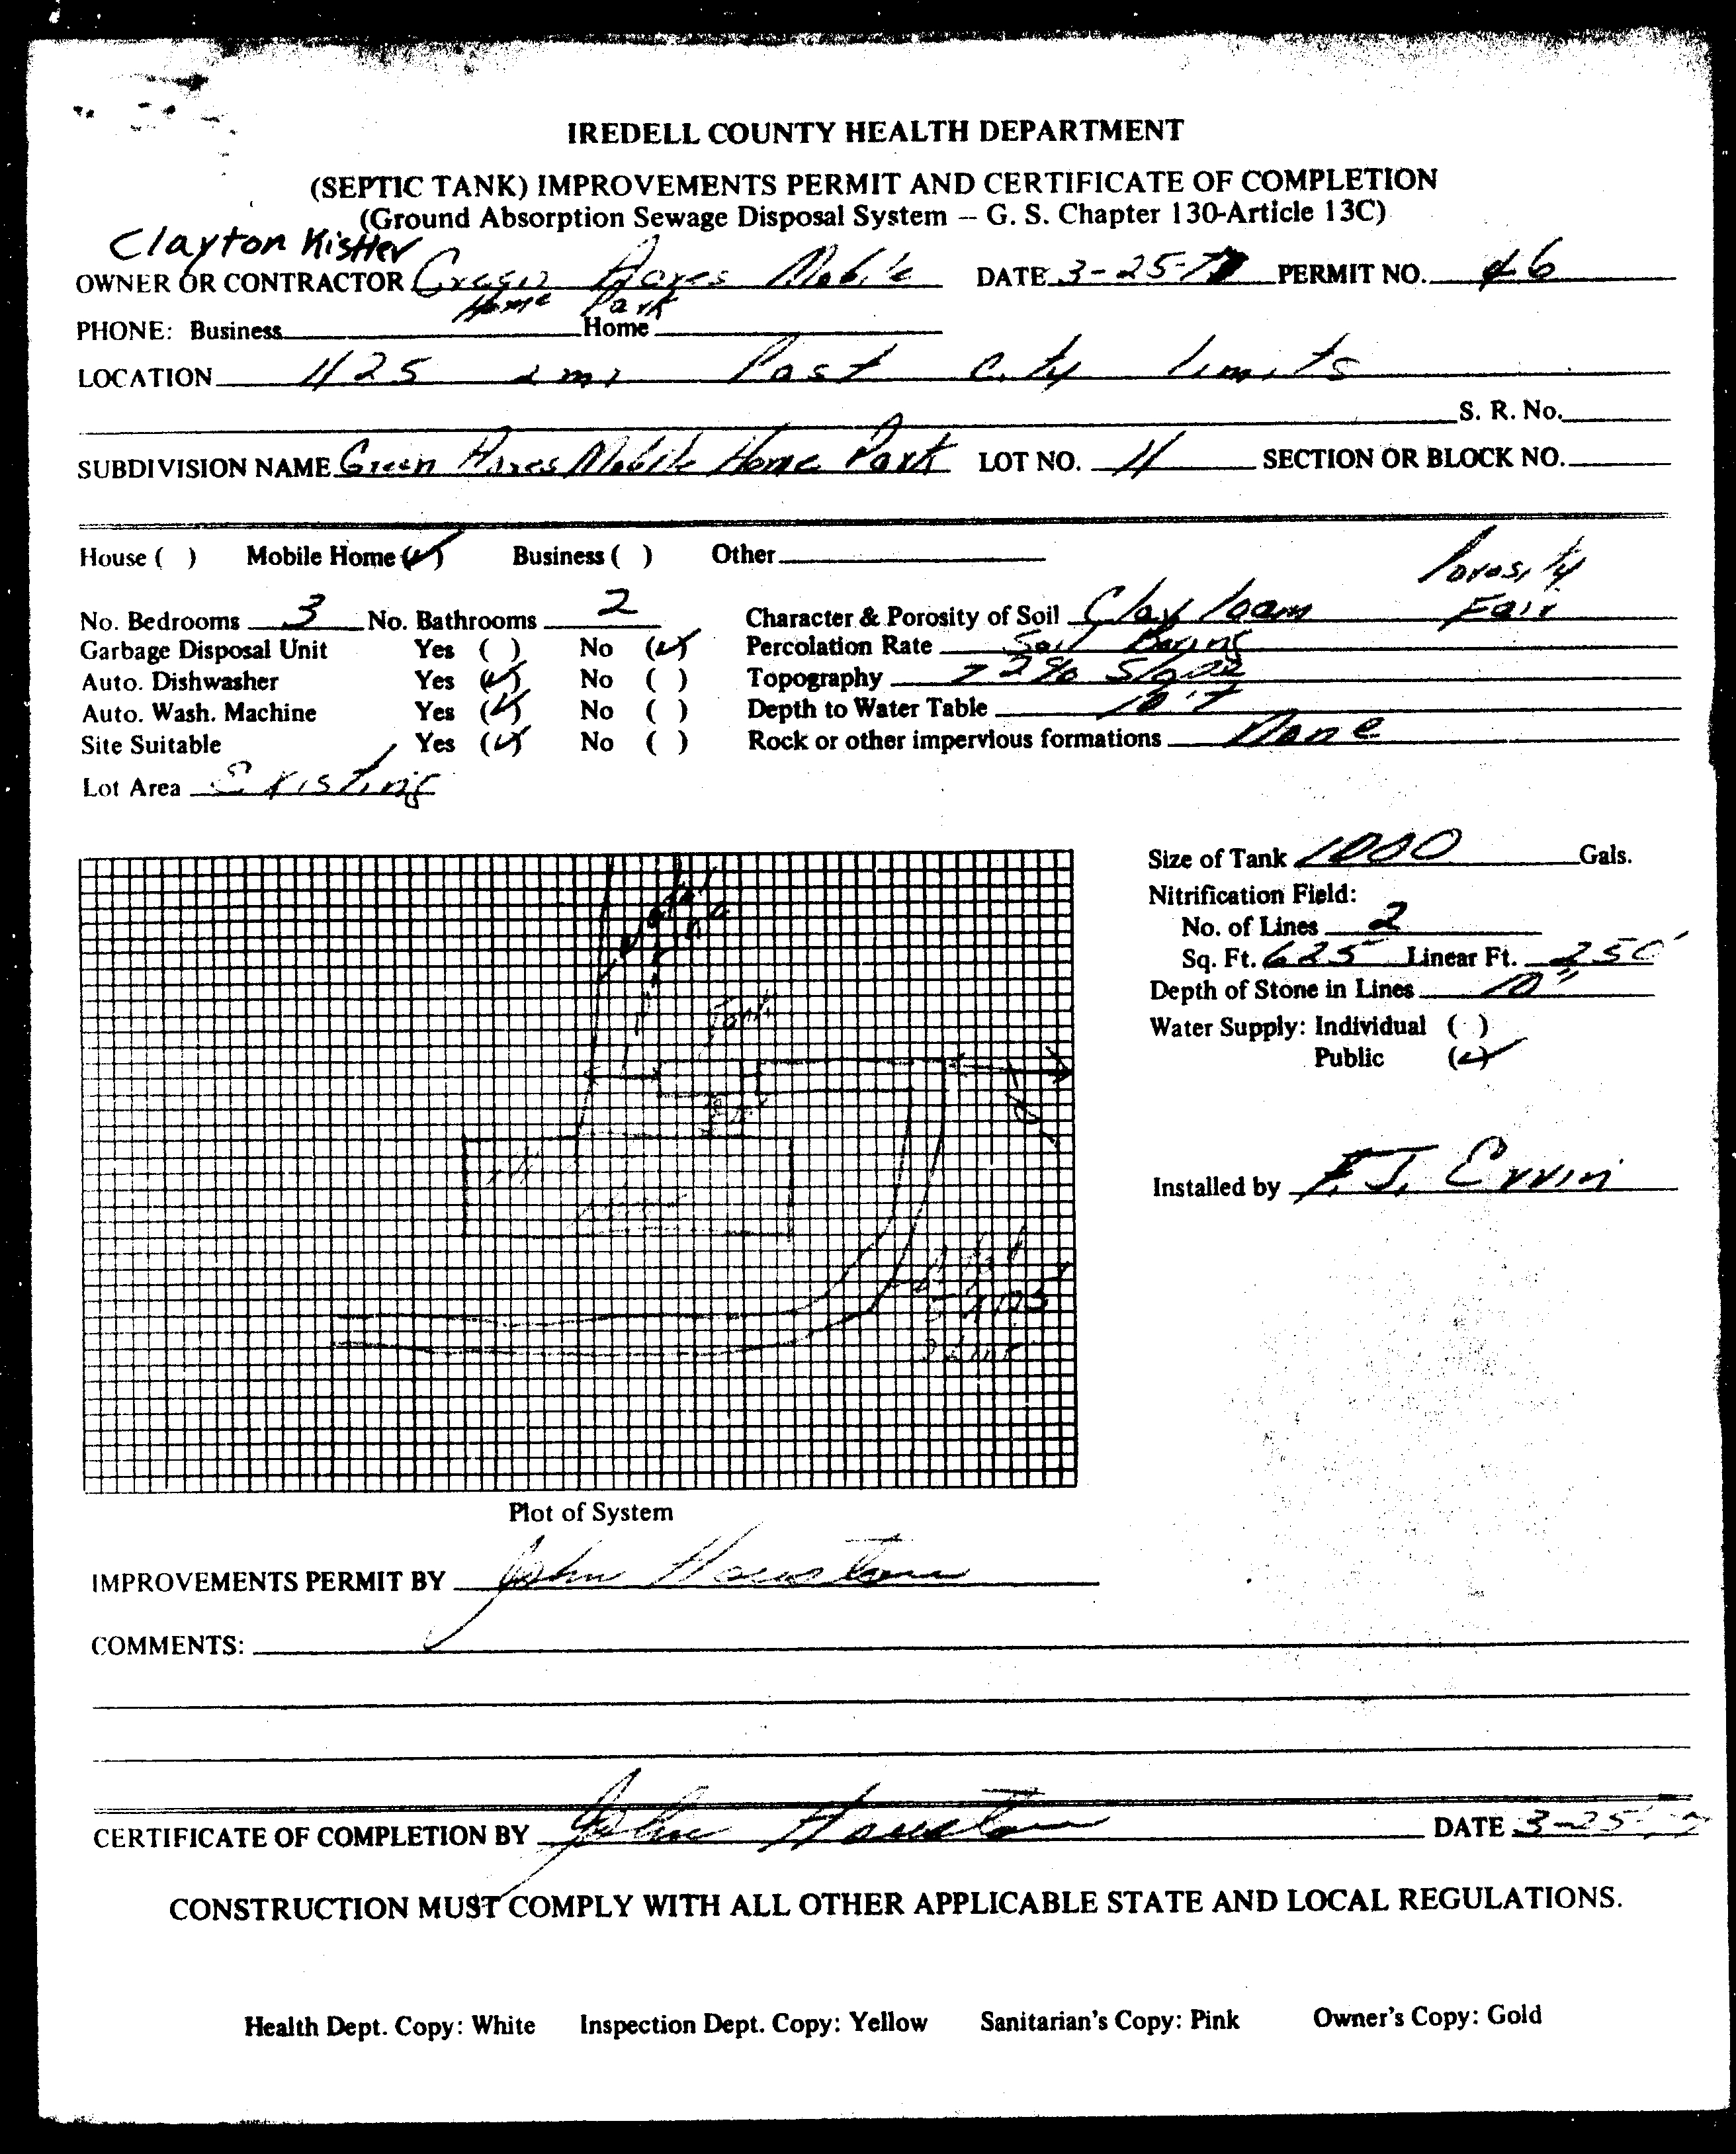 IREDELL COUNTY HEALTH DEPARTMENT
(SEPTIC TANK) IMPROVEMENTS PERMIT AND CERTIFICATE OF COMPLETION
(Ground Absorption Sewage Disposal System -- G. S. Chapter 130-Article 13C)
Clayton Kistler
OWNER OR CONTRACTOR Green Acres Mobile DATE 3-25-7 PERMIT NO. 46
Home Park
PHONE: Business Home
LOCATION 2 mi Past City limits
S. R. No.
SUBDIVISION NAME Green Acres Mobile Home Park LOT NO. 11 SECTION OR BLOCK NO.
House ( ) Mobile Home (✓) Business ( ) Other
Porosity
No. Bedrooms 3 No. Bathrooms 2 Character & Porosity of Soil Clay loam Fair
Garbage Disposal Unit Yes ( ) No (✓) Percolation Rate Soil Boring
Auto. Dishwasher Yes (✓) No ( ) Topography 7 2% Slope
Auto. Wash. Machine Yes (✓) No ( ) Depth to Water Table 10'+
Site Suitable Yes (✓) No ( ) Rock or other impervious formations None
Lot Area Existing
Size of Tank 1000 Gals.
Nitrification Field:
No. of Lines 2
Sq. Ft. 625 Linear Ft. 250'
Depth of Stone in Lines 10"
Water Supply: Individual ( )
Public (✓)
Water
line
Tank
Installed by F.J. Ervin
Plot of System
IMPROVEMENTS PERMIT BY John Houston
COMMENTS:
CERTIFICATE OF COMPLETION BY John Houston DATE 3-25-7
CONSTRUCTION MUST COMPLY WITH ALL OTHER APPLICABLE STATE AND LOCAL REGULATIONS.
Health Dept. Copy: White Inspection Dept. Copy: Yellow Sanitarian's Copy: Pink Owner's Copy: Gold